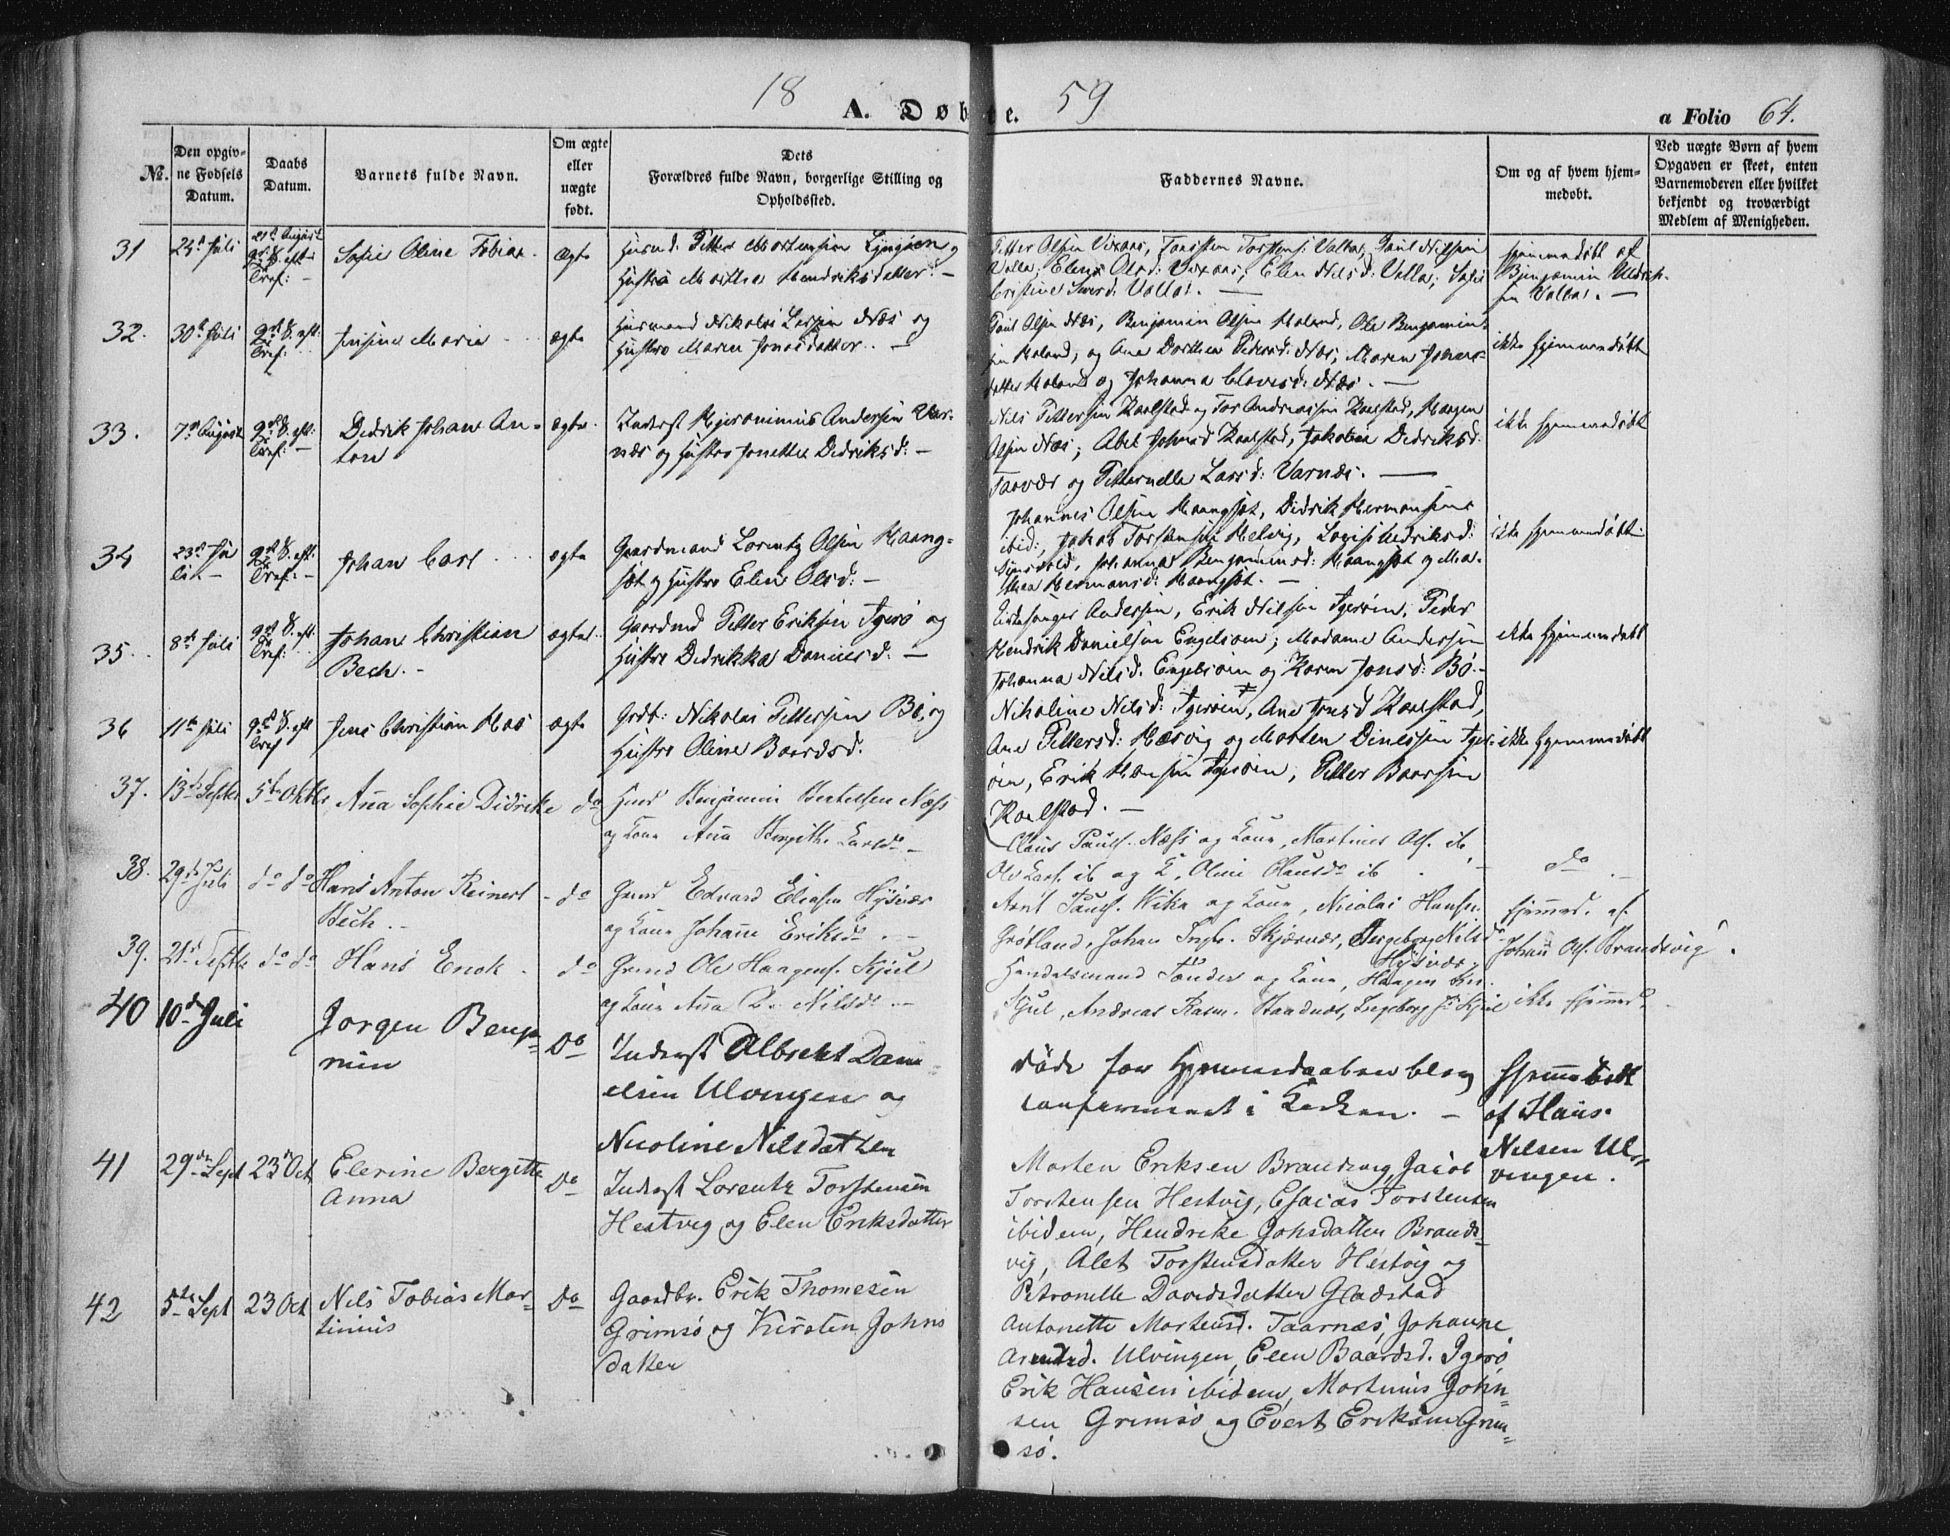 18 59
A. Døbte.
a Folio 64.
No.
Den opgivne Fødsels Datum.
Daabs Datum.
Barnets fulde Navn.
Om ægte eller uægte født.
Dets Forældres fulde Navn, borgerlige Stilling og Opholdssted.
Faddernes Navne.
Om og af hvem hjemmedøbt.
Ved uægte Børn af hvem Opgaven er skeet, enten Barnemoderen eller hvilket bekjendt og troværdigt Medlem af Menigheden.
31 24de Juli 21de August
9de S. eft. Tref:
Sofie Oline Tobia
ægte
Huusmd. Petter Mortensen og
Hustro Marthe Hendriksdatter. —
Petter Olsen Torsten Torstens: Vallas, Poul Nilsen
Valla; Elen Olsd: Elen Nilsd: Vallas; Sofie
Cristine Vallas. —
hjemmedøbt af
Benjamin
sen Vallas. —
32. 30te Juli 9de S. eft. Tref:
Jensine Marie
ægte
Huusmand Nikolai Larsen Næs og
Hustro Maren Jonasdatter. —
Poul Olsen Næs, Benjamin Olsen Moland, Ole Benjamin
sen Moland, og Ane Dorthea Pedersd: Næs, Maren Johans
datter Moland og Johanna Clavesd: Næs. —
ikke hjemmedøbt
33. 7de August 9de S. eft: Tref: —
Didrik Johan An-
ton
ægte
Inderst Hieronimus Andersen Var-
næs og Hustro Jonetta Didriksd: —
Nils Pettersen Karlstad og Tor Andreassen Karlstad, Haagen
Olsen Næs; Abel Johnsd Karlstad, Jakobea Didriksd:
Taarvær og Petternella Larsd: Varnæs. —
ikke hjemmedøbt
34 23de Ju
li —
9de S. eft. Tref: —
Johan Carl
ægte
Gaardmand Lorentz Olsen Haang-
sæt og Hustro Elen Olsd: —
Johannes Olsen Haangsæt, Didrik Hermansen
ibid:, Jakob Torstensen Helvig, Lovise Hedriksd:
Johanna Benjaminsd: Haangsæt og Mar-
thea Hermansd: Haangsæt. —
ikke hjemmedøbt
35. 8de Juli 9de S. eft. Tref:
Johan Christian
Bech. —
ægte
Gaardmd Petter Eriksen Igerø og
Hustro Didrikka Danielsd. —
Kirkesanger Andersen, Erik Nilsen Igerøen, Peder
Hendrik Danielsen Engelsøen; Madame Andersen
Johanna Nilsd. Engelsøen og Karen Jonsd: Bø. —
ikke hjemmedøbt
36 11te Juli 9de S. eft Tref
Jens Christian Moe
ægte
Grdbr: Nikolai Pettersen Bø, og
Hustro Oline Baardsd.
Nikoline Nilsd: Igerøen, Ane Jonsd Karlstad,
Ane Pettersd: Hæsvig og Morten Dinessen Iger-
øen, Erik Hansen Igerøen, Petter Baarsen
Karlstad. —
ikke hjemmedøbt
37. 13de Septbr 5te Oktbr
Anna Sophie Didrikke
do
Huusmd Benjamin Bertelsen Næss
og Kone Anna Bergitte Larsd. —
Claus Paulsf. Næss og Kone, Martines Ols. ib,
Ole Lars. ib og K. Oline Olausd. ib
do
38. 29de Juli do do
Hans Anton Reinert
Bech. —
do
Grmd Edvard Eliasen Hysvær
og Kone Johanne Eriksd. —
Arnt Paulsf. Wika og Kone, Nicolai Hansen
Grøtland, Johan Skjærvær, Ingeborg Nilsd.
Hysvær —
Hjemmed. af
Johan Ols. Brandsvig.
39. 21de Septbr do do
Hans Enok
do
Grmd Ole Haagens. Kjul
og Kone Anna Nilsd. —
Handelsmand Tønder og Kone, Haagen
Kjul, Andreas Rasm. Strandnæs, Ingeborg Kjul
ikke hjemmed.
40 10de Juli
Jørgen Benja-
min
Do
Inderst Albrekt Dani-
elsen Ulvingen og
Nicoline Nilsdatter
døde før Hjemmedaaben blev
confirmeret i Kirken. —
Hjemmedøbt
af Hans
Nilsen Ul-
vingen.
41 29de Sept 23de Oct
Elerine Bergitte
Anna
Do
Inderst Lorentz Torstensen
Hestvig og Elen Eriksdatter
Morten Eriksen Brandsvig, Jacob
Torstensen Hestvig, Esaias Torstensen
ibidem, Hendrike Johsdatter Brands-
vig, Alet Torstensdatter Hestvig og
Petronelle Davidsdatter Gladstad
42 5te Sept 23 Oct
Nils Tobias Mar-
tinius
Do
Gaardbr. Erik Thomesen
Grimsø og Kirsten Johns
datter
Antonette Mortensd. Taarnæs, Johanne
Arntsd. Ulvingen, Elen Baardsd. Igerø
Erik Hansen ibidem, Martinus John-
sen Grimsø og Evert Eriksen Grim-
sø.